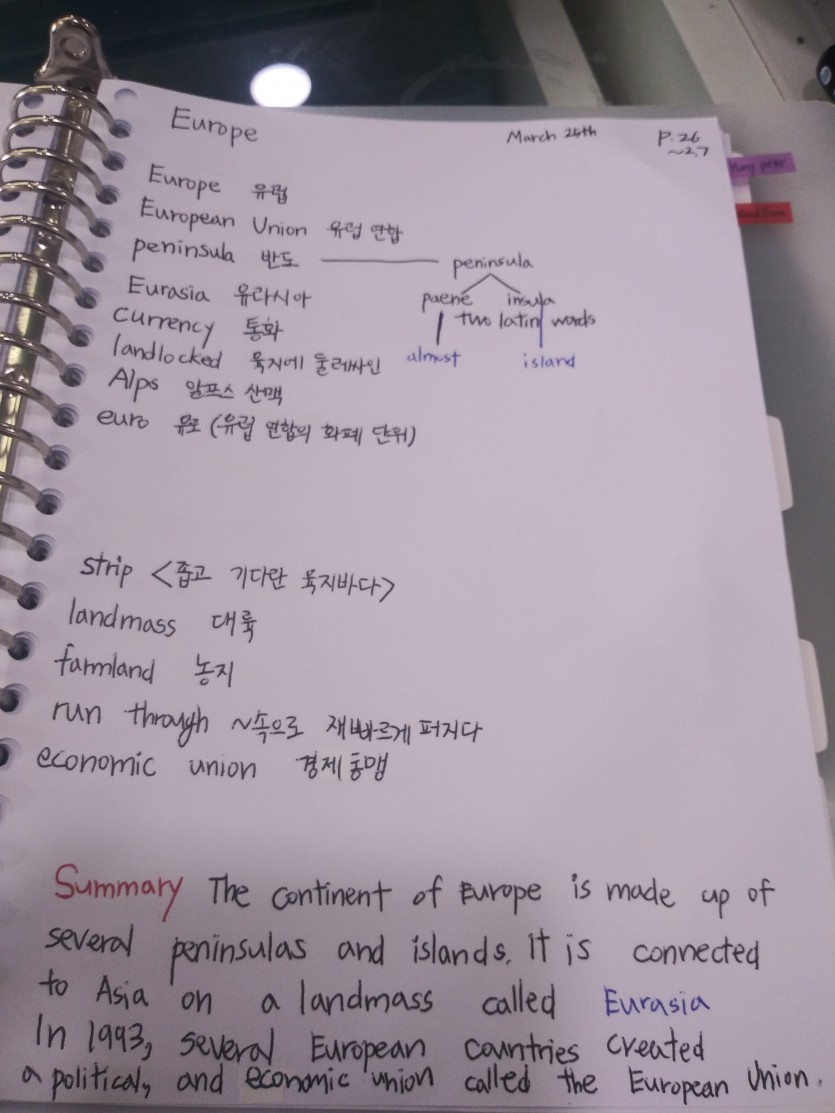 Europe March 24th P.26
~27
Europe 유럽
European Union 유럽 연합
peninsula 반도 peninsula
Eurasia 유라시아 paene insula
currency 통화 two latin words
landlocked 육지에 둘러싸인 almost island
Alps 알프스 산맥
euro 유로 (유럽 연합의 화폐 단위)
strip <좁고 기다란 육지바다>
landmass 대륙
farmland 농지
run through ~속으로 재빠르게 퍼지다
economic union 경제동맹
Summary The continent of Europe is made up of
several peninsulas and islands. It is connected
to Asia on a landmass called Eurasia
In 1993, several European countries created
a political, and economic union called the European Union.